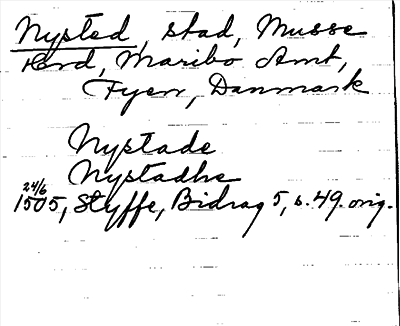 Nysted, stad, Musse
Hrd, Maribo Amt,
Fyen, Danmark
Nystade
Nystadhe
24/6
1505, Styffe, Bidrag 5, s. 49. orig.